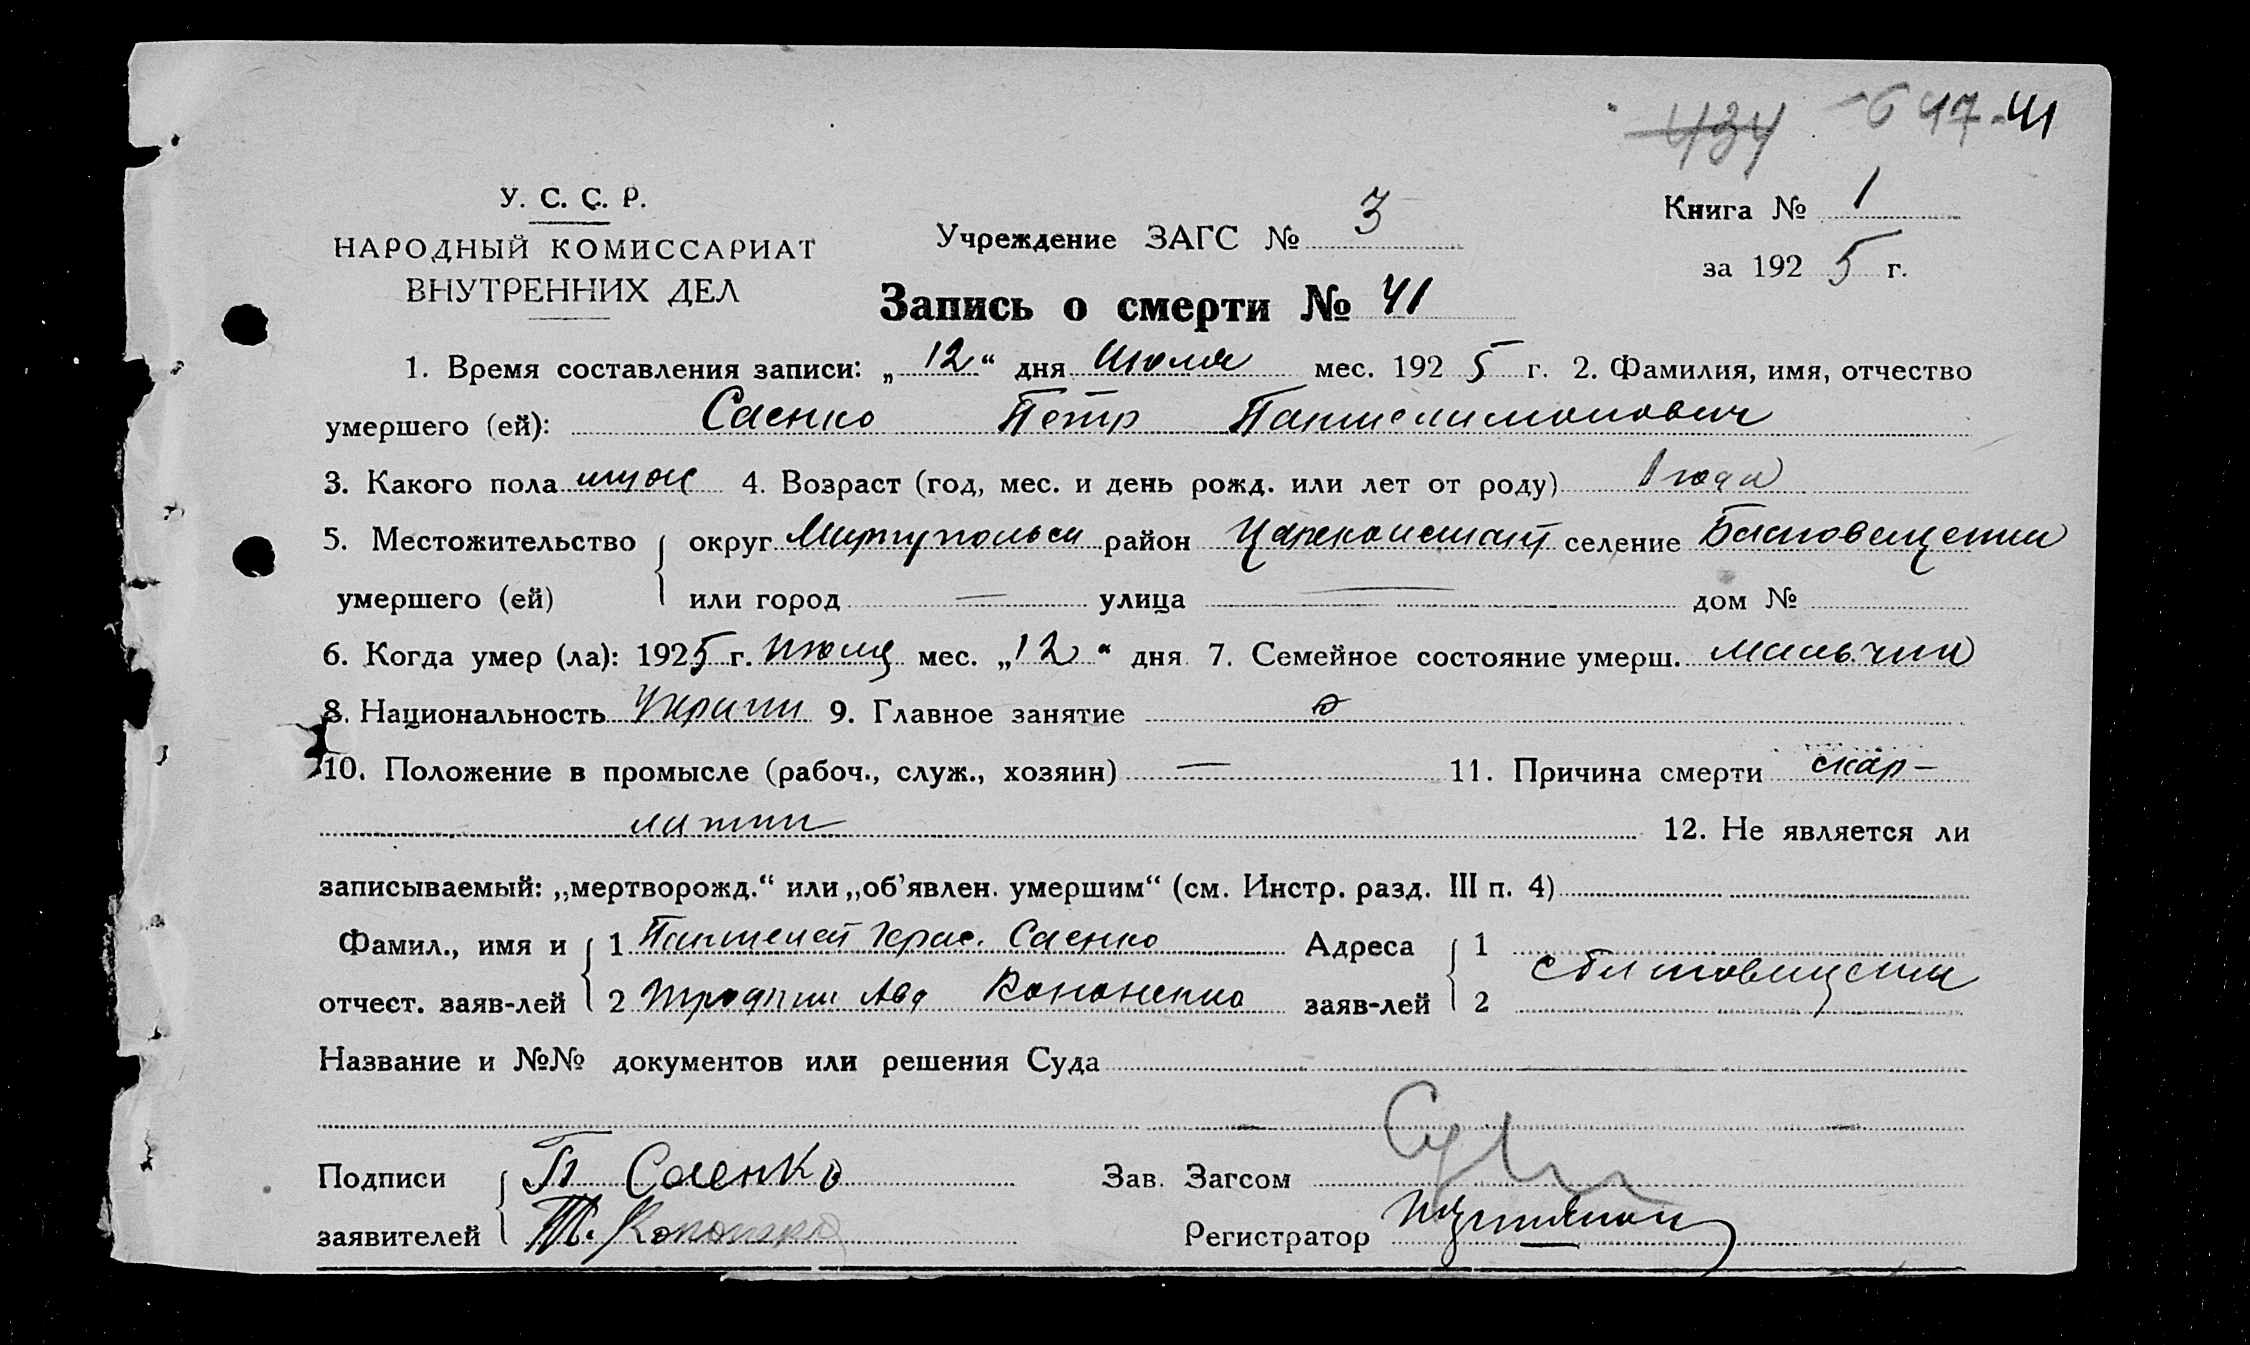 434 647-41
У. С. С. Р.
НАРОДНЫЙ КОМИССАРИАТ
ВНУТРЕННИХ ДЕЛ
Учреждение ЗАГС № 3
Книга № 1
за 192 5 г.
Запись о смерти № 41
1. Время составления записи: „ 12 “ дня Июля мес. 192 5 г. 2. Фамилия, имя, отчество
умершего (ей): Саенко Петр Пантелимонович
3. Какого пола муж 4. Возраст (год, мес. и день рожд. или лет от роду) 1 года
5. Местожительство округ район селение
умершего (ей) или город — улица — дом №
6. Когда умер (ла): 1925 г. Июля мес. „12“ дня 7. Семейное состояние умерш. мальчик
8. Национальность Украин 9. Главное занятие
10. Положение в промысле (рабоч., служ., хозяин) — 11. Причина смерти скар-
латин
12. Не является ли
записываемый: „мертворожд.“ или „об’явлен. умершим“ (см. Инстр. разд. III п. 4)
Фамил., имя и 1 Пантелей Герас. Саенко Адреса 1
отчест. заяв-лей 2 Авд Кононенко заяв-лей 2
Название и №№ документов или решения Суда
Подписи П Саенко Зав. Загсом
заявителей Т. Регистратор